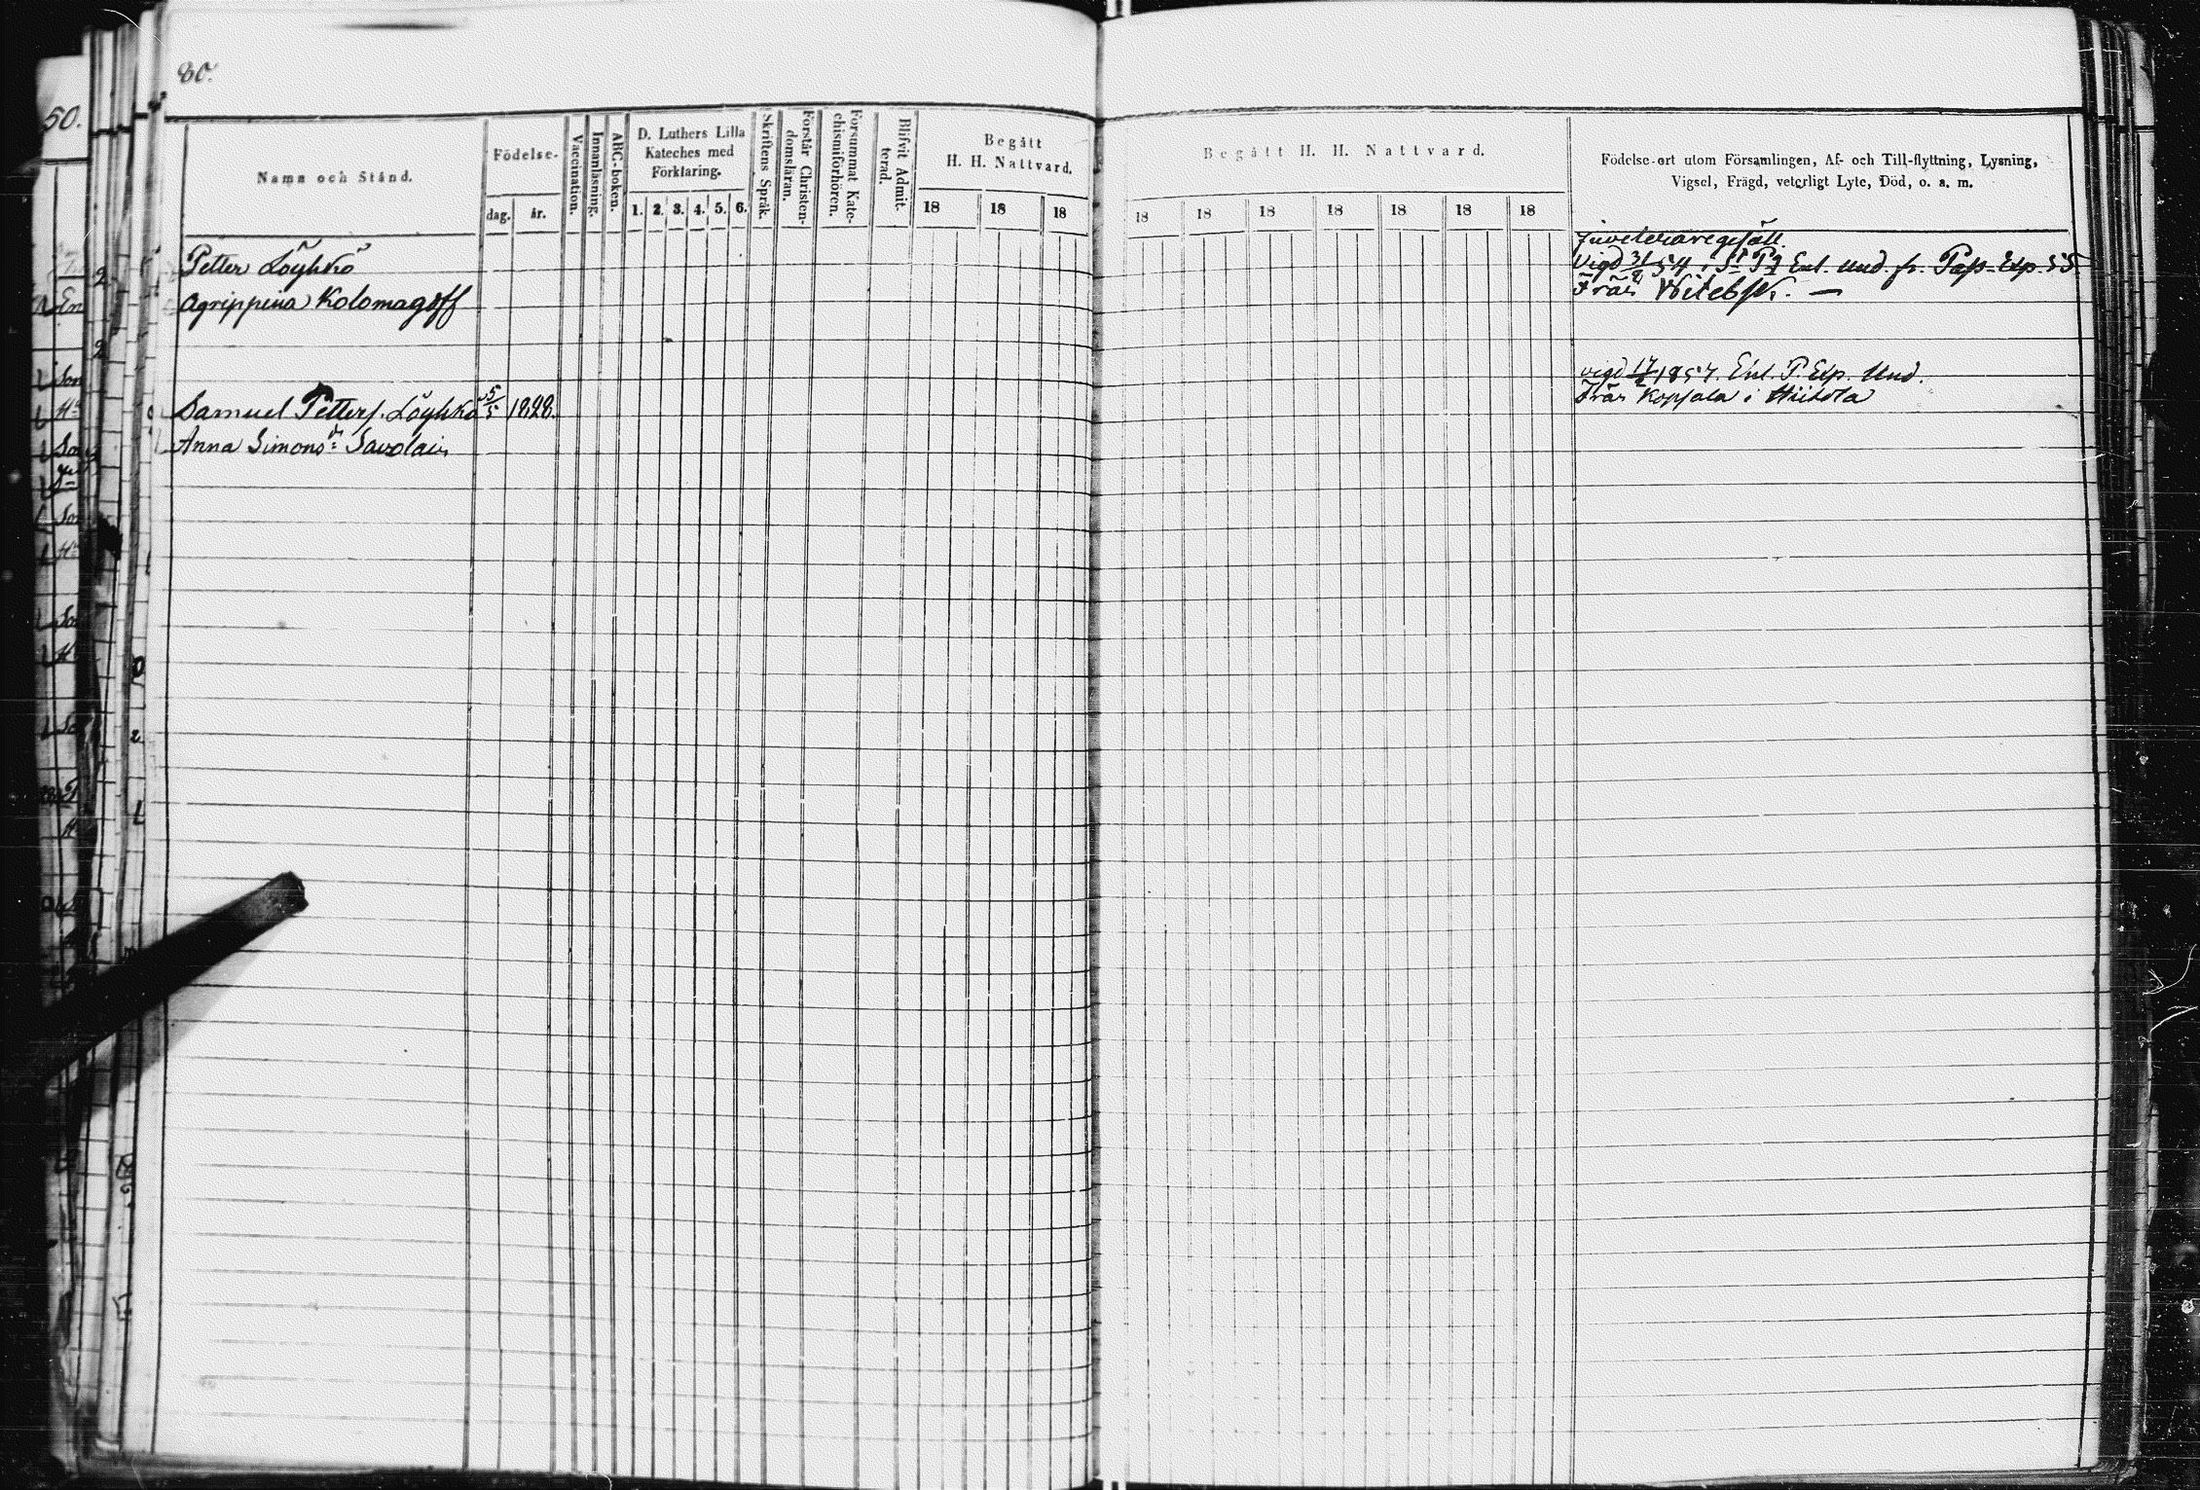 80.
50.
Namn och Stånd.
Födelse-
dag.
år.
Vaccination.
Innanläsning.
ABC-boken.
D. Luthers Lilla
Kateches med
Förklaring.
1. 2. 3. 4. 5. 6.
Skriftens Språk.
Förstår Christen-
domsläran.
Försummat Kate-
chismiförhören.
Blifvit Admit-
terad.
Begått
H. H. Nattvard.
18 18 18
Begått H. H. Nattvard.
18 18 18 18 18 18 18
Födelse-ort utom Församlingen, Af- och Till-flyttning, Lysning,
Vigsel, Frägd, veterligt Lyte, Död, o. s. m.
Petter Löyhkö
Vigd 31/8 54 i St Pg Enl. und. fr. Pass-Exp. 55
Agrippina Kolomagoff
Från Witebsk. —
vigd 17/2 1857. Enl. P. Exp. Und.
Samuel Petters. Löyhkö 5/5 1828.
Från Kopsala i Hiitola
Anna Simonsdr Savolain